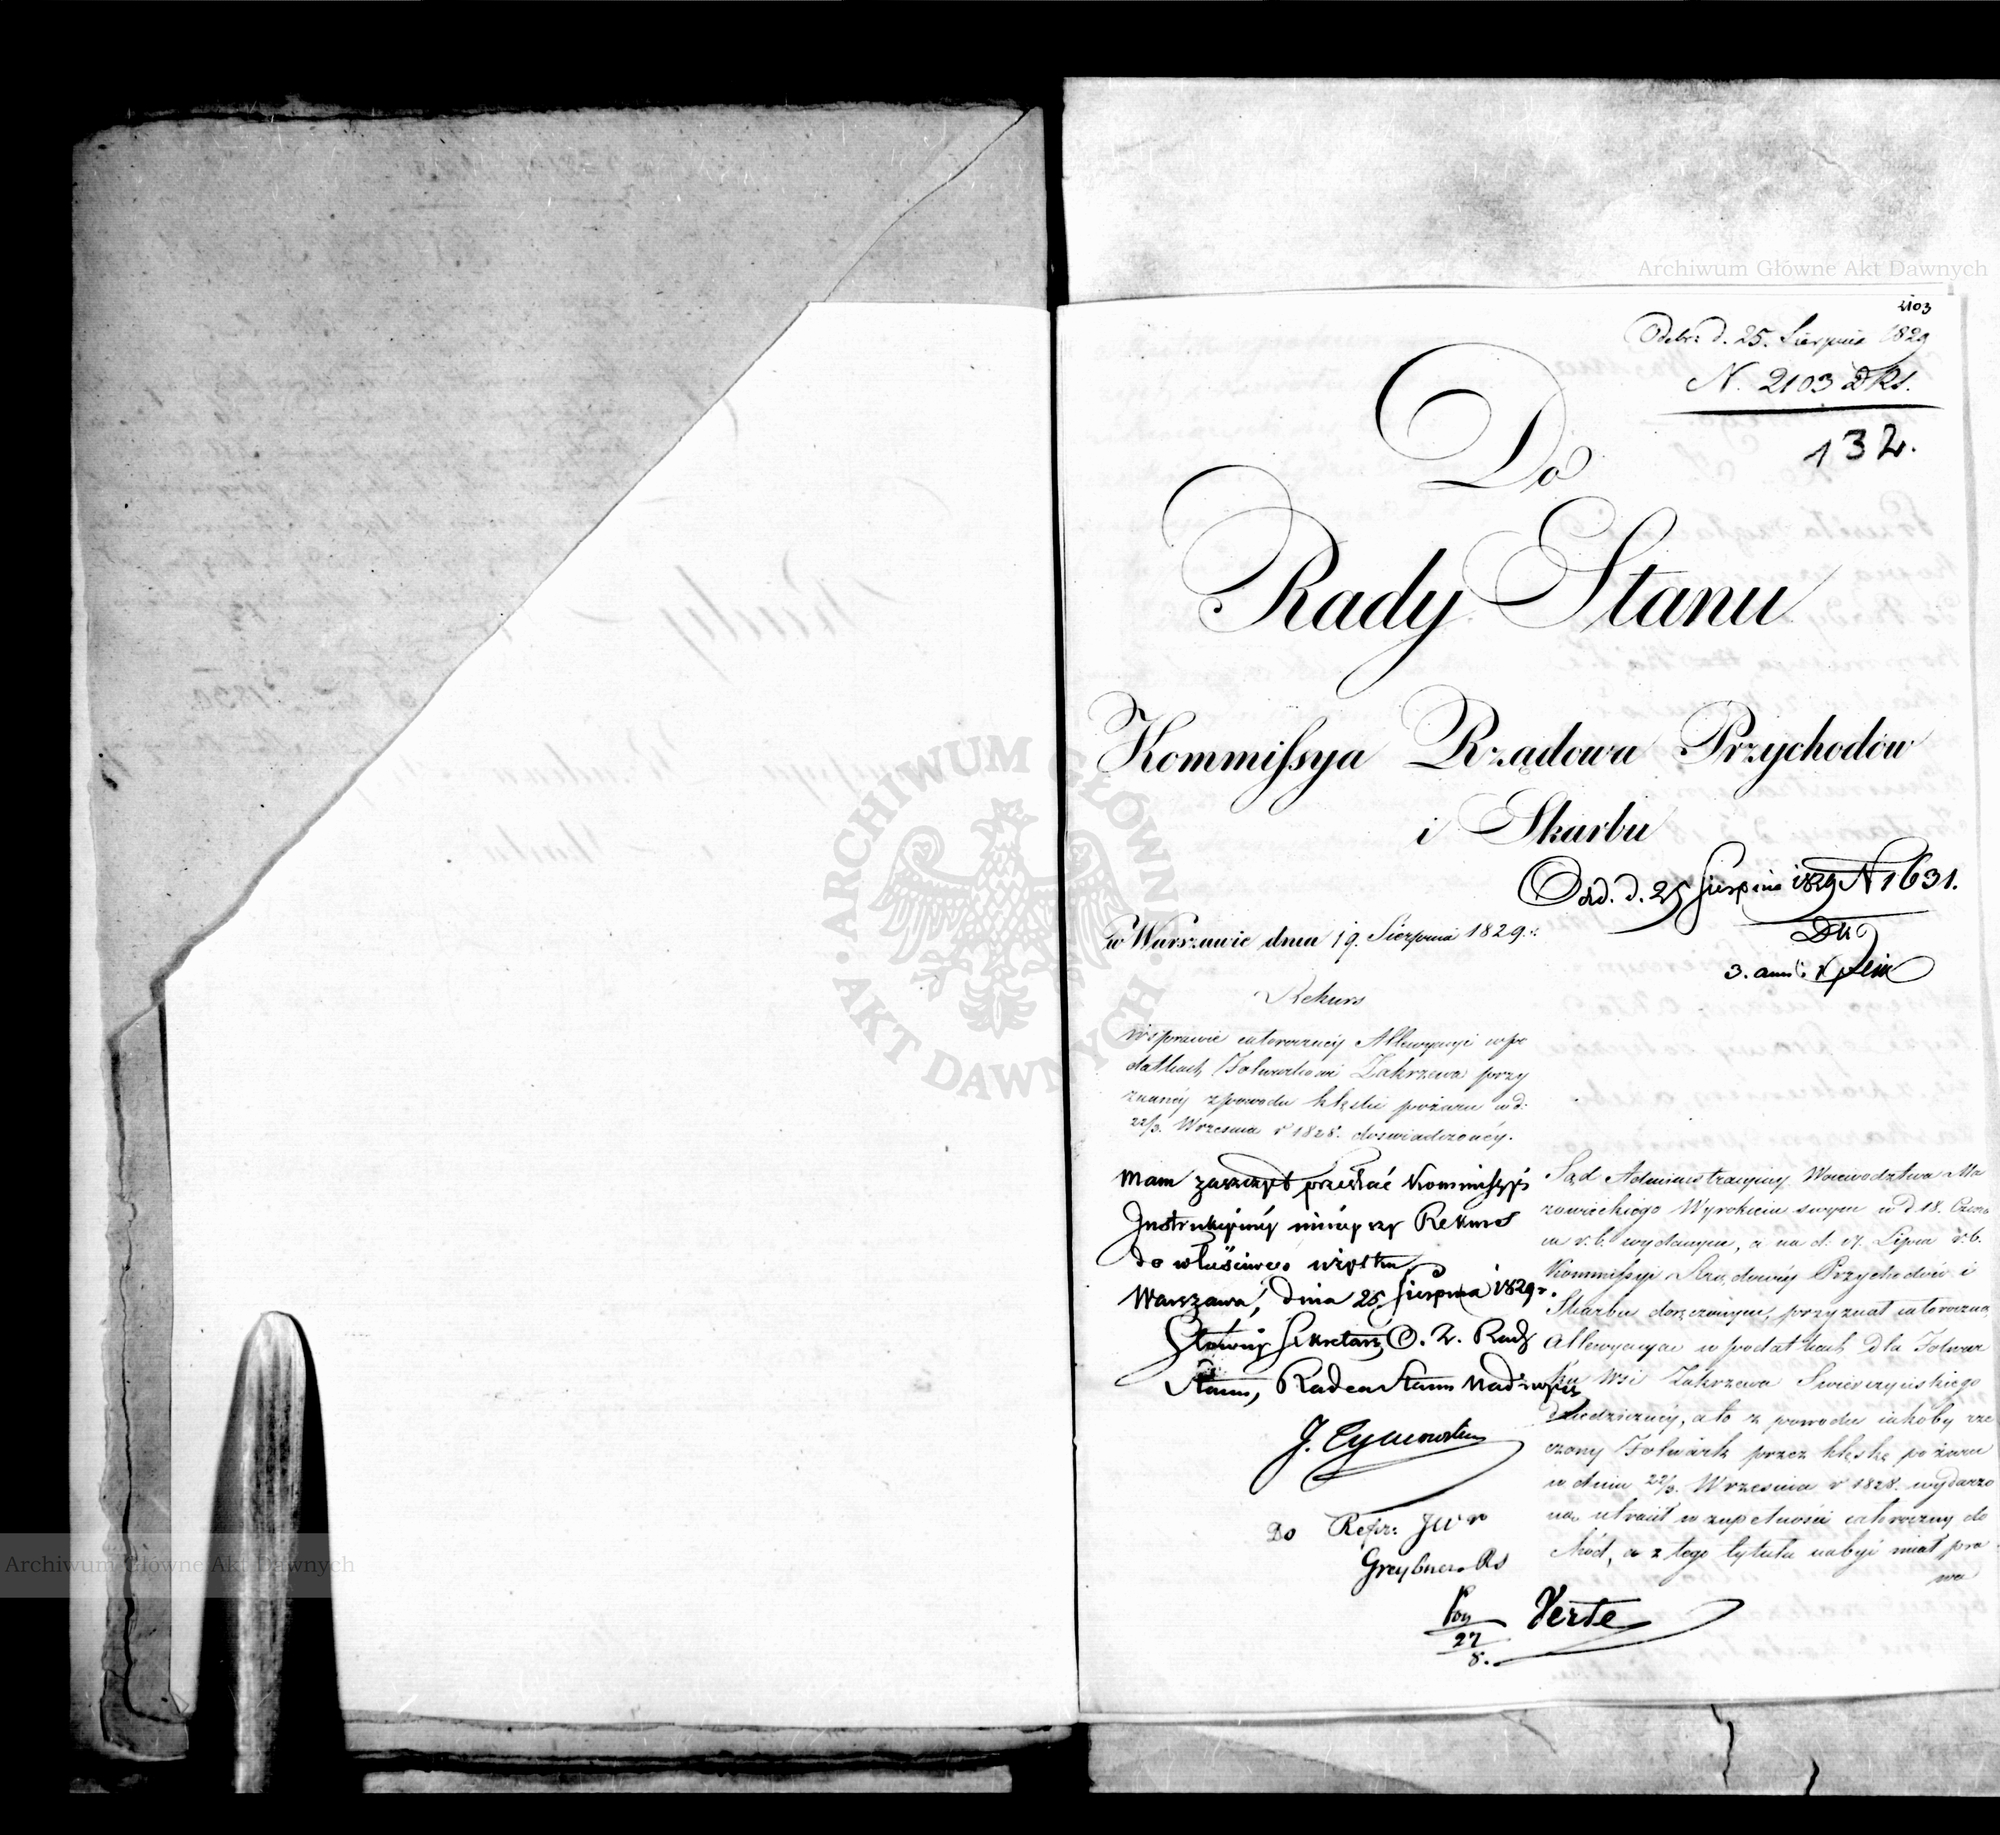 2103
Odebr: d. 25. Sierpnia 1829
N. 2103 DKS.
132.
Do
Rady Stanu
Kommissya Rządowa Przychodów
i Skarbu
Odd. d. 25 Sierpnia 1829 N 1631.
w Warszawie dnia 19. Sierpnia 1829. r.
3.
Rekurs
w sprawie całorocznéy Allewyacyi w po
datkach Folwarkowi Zakrzewa przy
znanéy z powodu klęski pożaru w d:
22/3. Września r 1828. doświadczonéy.
Mam zaszczyt przesłać Kommissyi
Instrukcyinéy ninieyszy Rekurs
do właściwego użytku
Warszawa, dnia 25 Sierpnia 1829 r.
Główny Sekretarz O. Z. Rady
Stanu, Radca Stanu Nadzwycz
J. Tymowski
Do Refer: JW r
Greybner RS
27
8.
Sąd Administracyiny Województwa Ma
zowieckiego Wyrokiem swym w d 18. Czerw
ca r. b. wydanym, a na d: 17. Lipca r. b.
Kommissyi Rządowéy Przychodów i
Skarbu doręczonym, przyznał całoroczną
Allewyacyę w podatkach dla Folwar
ku Wsi Zakrzewa Swierczyńskiego
Dziedzicznéy, a to z powodu iakoby rze
czony Folwark przez klęskę pożaru
w dniu 22/3. Września r 1828. wydarzo
ną, utracił w zupełności całoroczny do
chód, a z tego tytułu nabyć miał pra
wa
Verte
ARCHIWUM GŁÓWNE AKT DAWNYCH
Archiwum Główne Akt Dawnych
Archiwum Główne Akt Dawnych